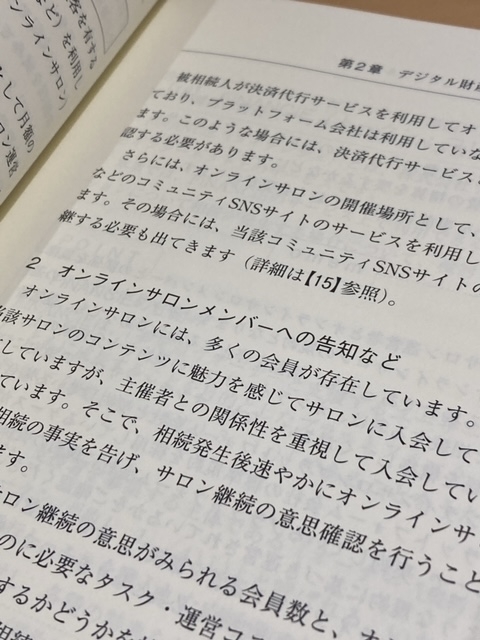 客を有する
など）を利用し
ンラインサロン）
をして月額の
ロン運営
第2章　デジタル財
被相続人が決済代行サービスを利用してオ
ており、プラットフォーム会社は利用していな
ます。このような場合には、決済代行サービス
認する必要があります。
さらには、オンラインサロンの開催場所として、
などのコミュニティSNSサイトのサービスを利用し
ます。その場合には、当該コミュニティSNSサイトの
継する必要も出てきます（詳細は【15】参照）。
2　オンラインサロンメンバーへの告知など
オンラインサロンには、多くの会員が存在しています。
当該サロンのコンテンツに魅力を感じてサロンに入会して
していますが、主催者との関係性を重視して入会してい
ています。そこで、相続発生後速やかにオンラインサ
相続の事実を告げ、サロン継続の意思確認を行うこと
ます。
サロン継続の意思がみられる会員数と、
のに必要なタスク・運営コ
するかどうかを